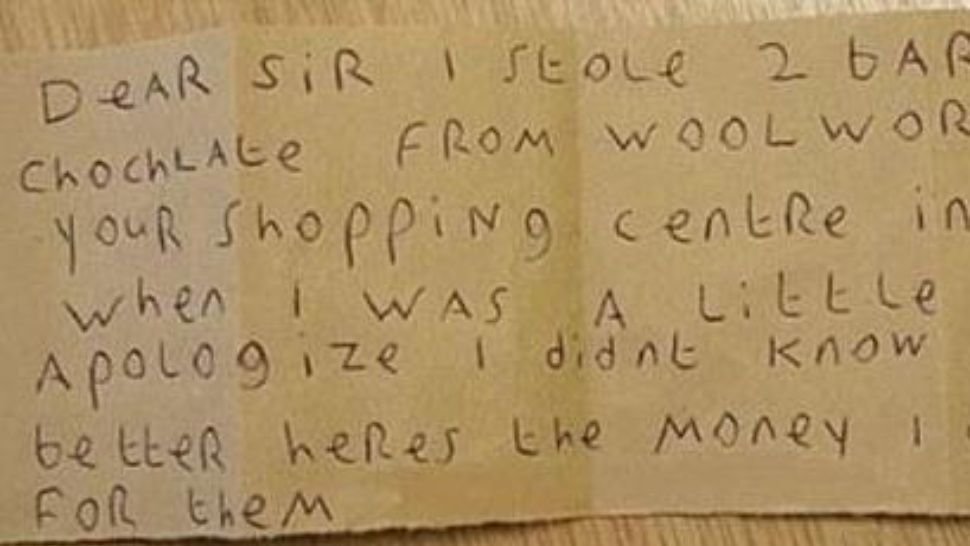 DeAR SiR I StOLe 2 bAR
ChochLAte FROM WOOLWOR
youR ShoppiNg centRe in
when I WAS A Little
ApoLogize I didnt Know
betteR heRes the Money I
FoR theM